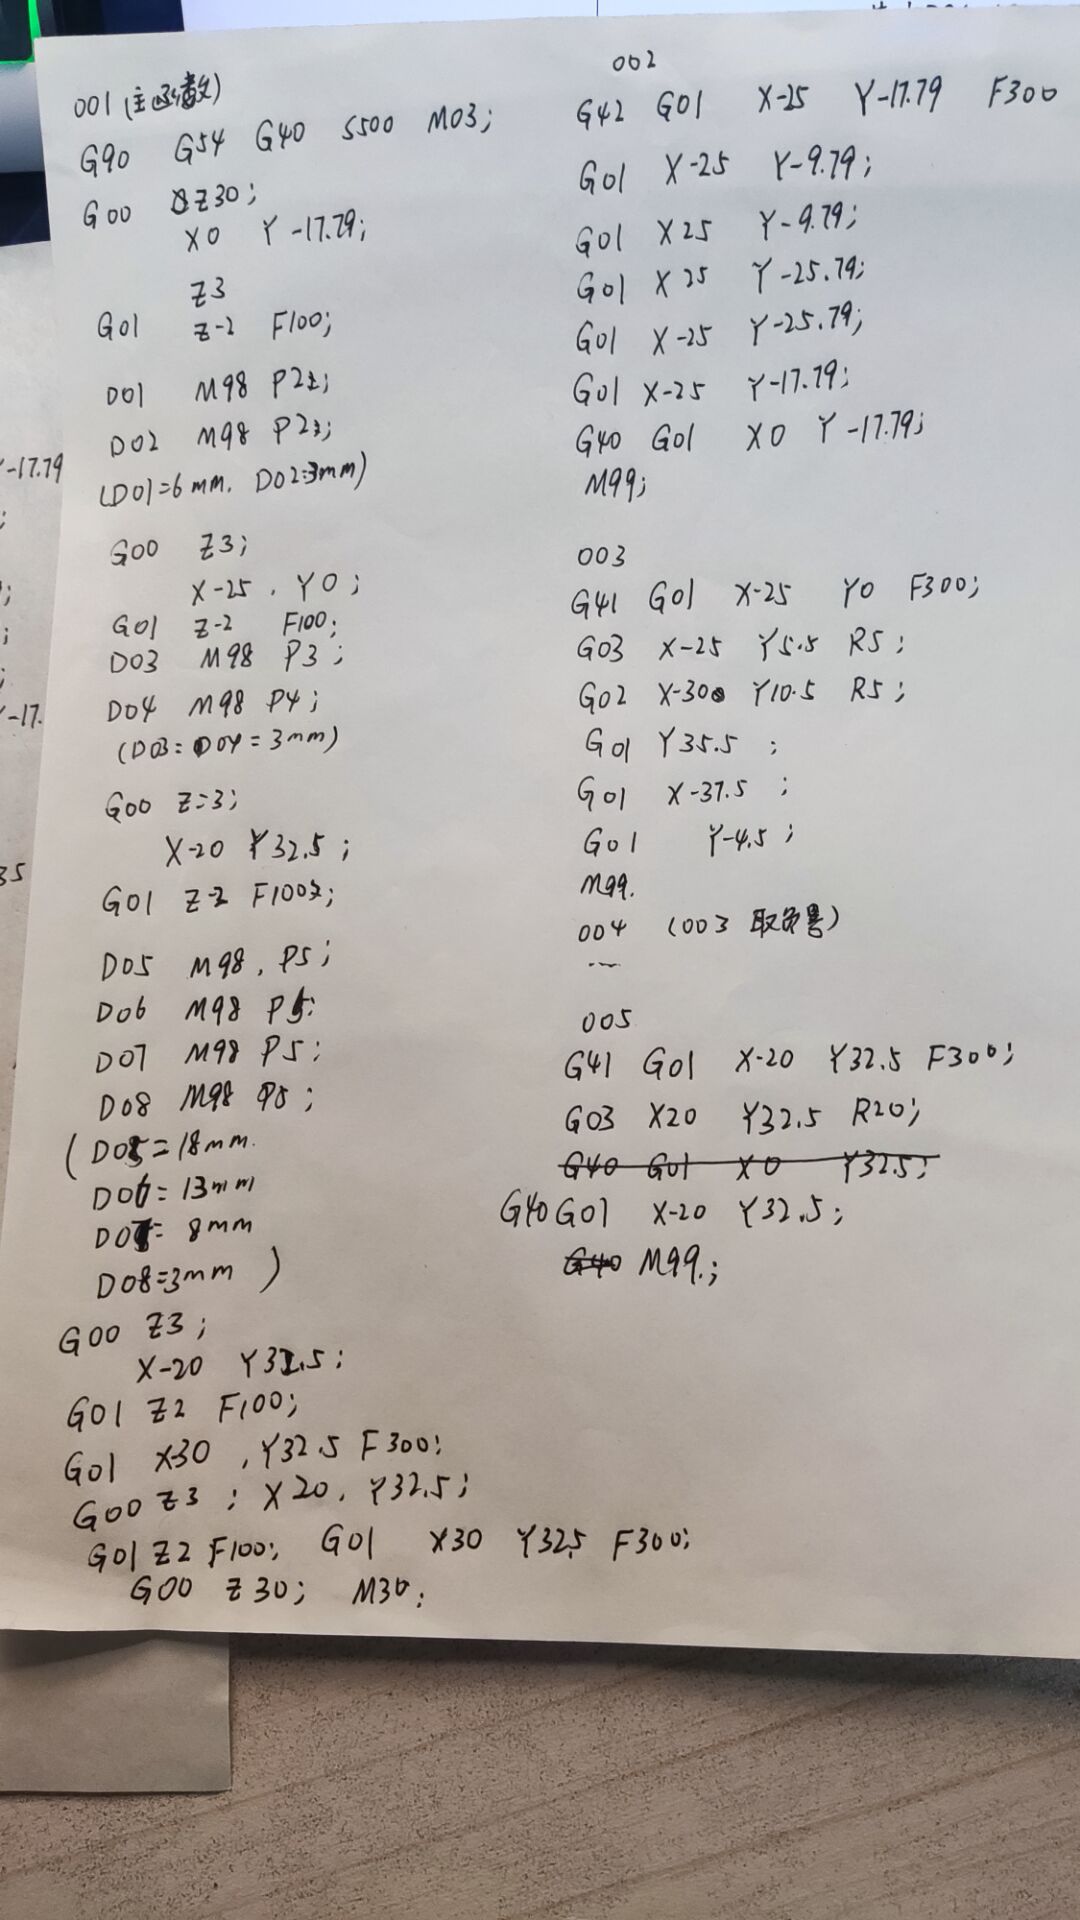 001 (主函数)
G90 G54 G40 S500 M03;
G00 Z30;
X0 Y-17.79;
Z3
G01 Z-2 F100;
D01 M98 P2;
D02 M98 P2;
(D01=6mm. D02=3mm)
G00 Z3;
X-25. Y0;
G01 Z-2 F100;
D03 M98 P3;
D04 M98 P4;
(D03=D04=3mm)
G00 Z=3;
X-20 Y32.5;
G01 Z-2 F100;
D05 M98, P5;
D06 M98 P5;
D07 M98 P5;
D08 M98 P5;
(D05=18mm.
D06=13mm
D07=8mm
D08=3mm)
G00 Z3;
X-20 Y32.5;
G01 Z2 F100;
G01 X-30, Y32.5 F300;
G00 Z3; X20, Y32.5;
G01 Z2 F100; G01 X30 Y32.5 F300;
G00 Z30; M30;
002
G42 G01 X-25 Y-17.79 F300
G01 X-25 Y-9.79;
G01 X25 Y-9.79;
G01 X25 Y-25.79;
G01 X-25 Y-25.79;
G01 X-25 Y-17.79;
G40 G01 X0 Y-17.79;
M99;
003
G41 G01 X-25 Y0 F300;
G03 X-25 Y5.5 R5;
G02 X-30 Y10.5 R5;
G01 Y35.5;
G01 X-37.5;
G01 Y-4.5;
M99.
004 (003 取负号)
...
005
G41 G01 X-20 Y32.5 F300;
G03 X20 Y32.5 R20;
G40 G01 X0 Y32.5;
G40 G01 X-20 Y32.5;
G40 M99.;
-17.79
;
;
;
-17.
35